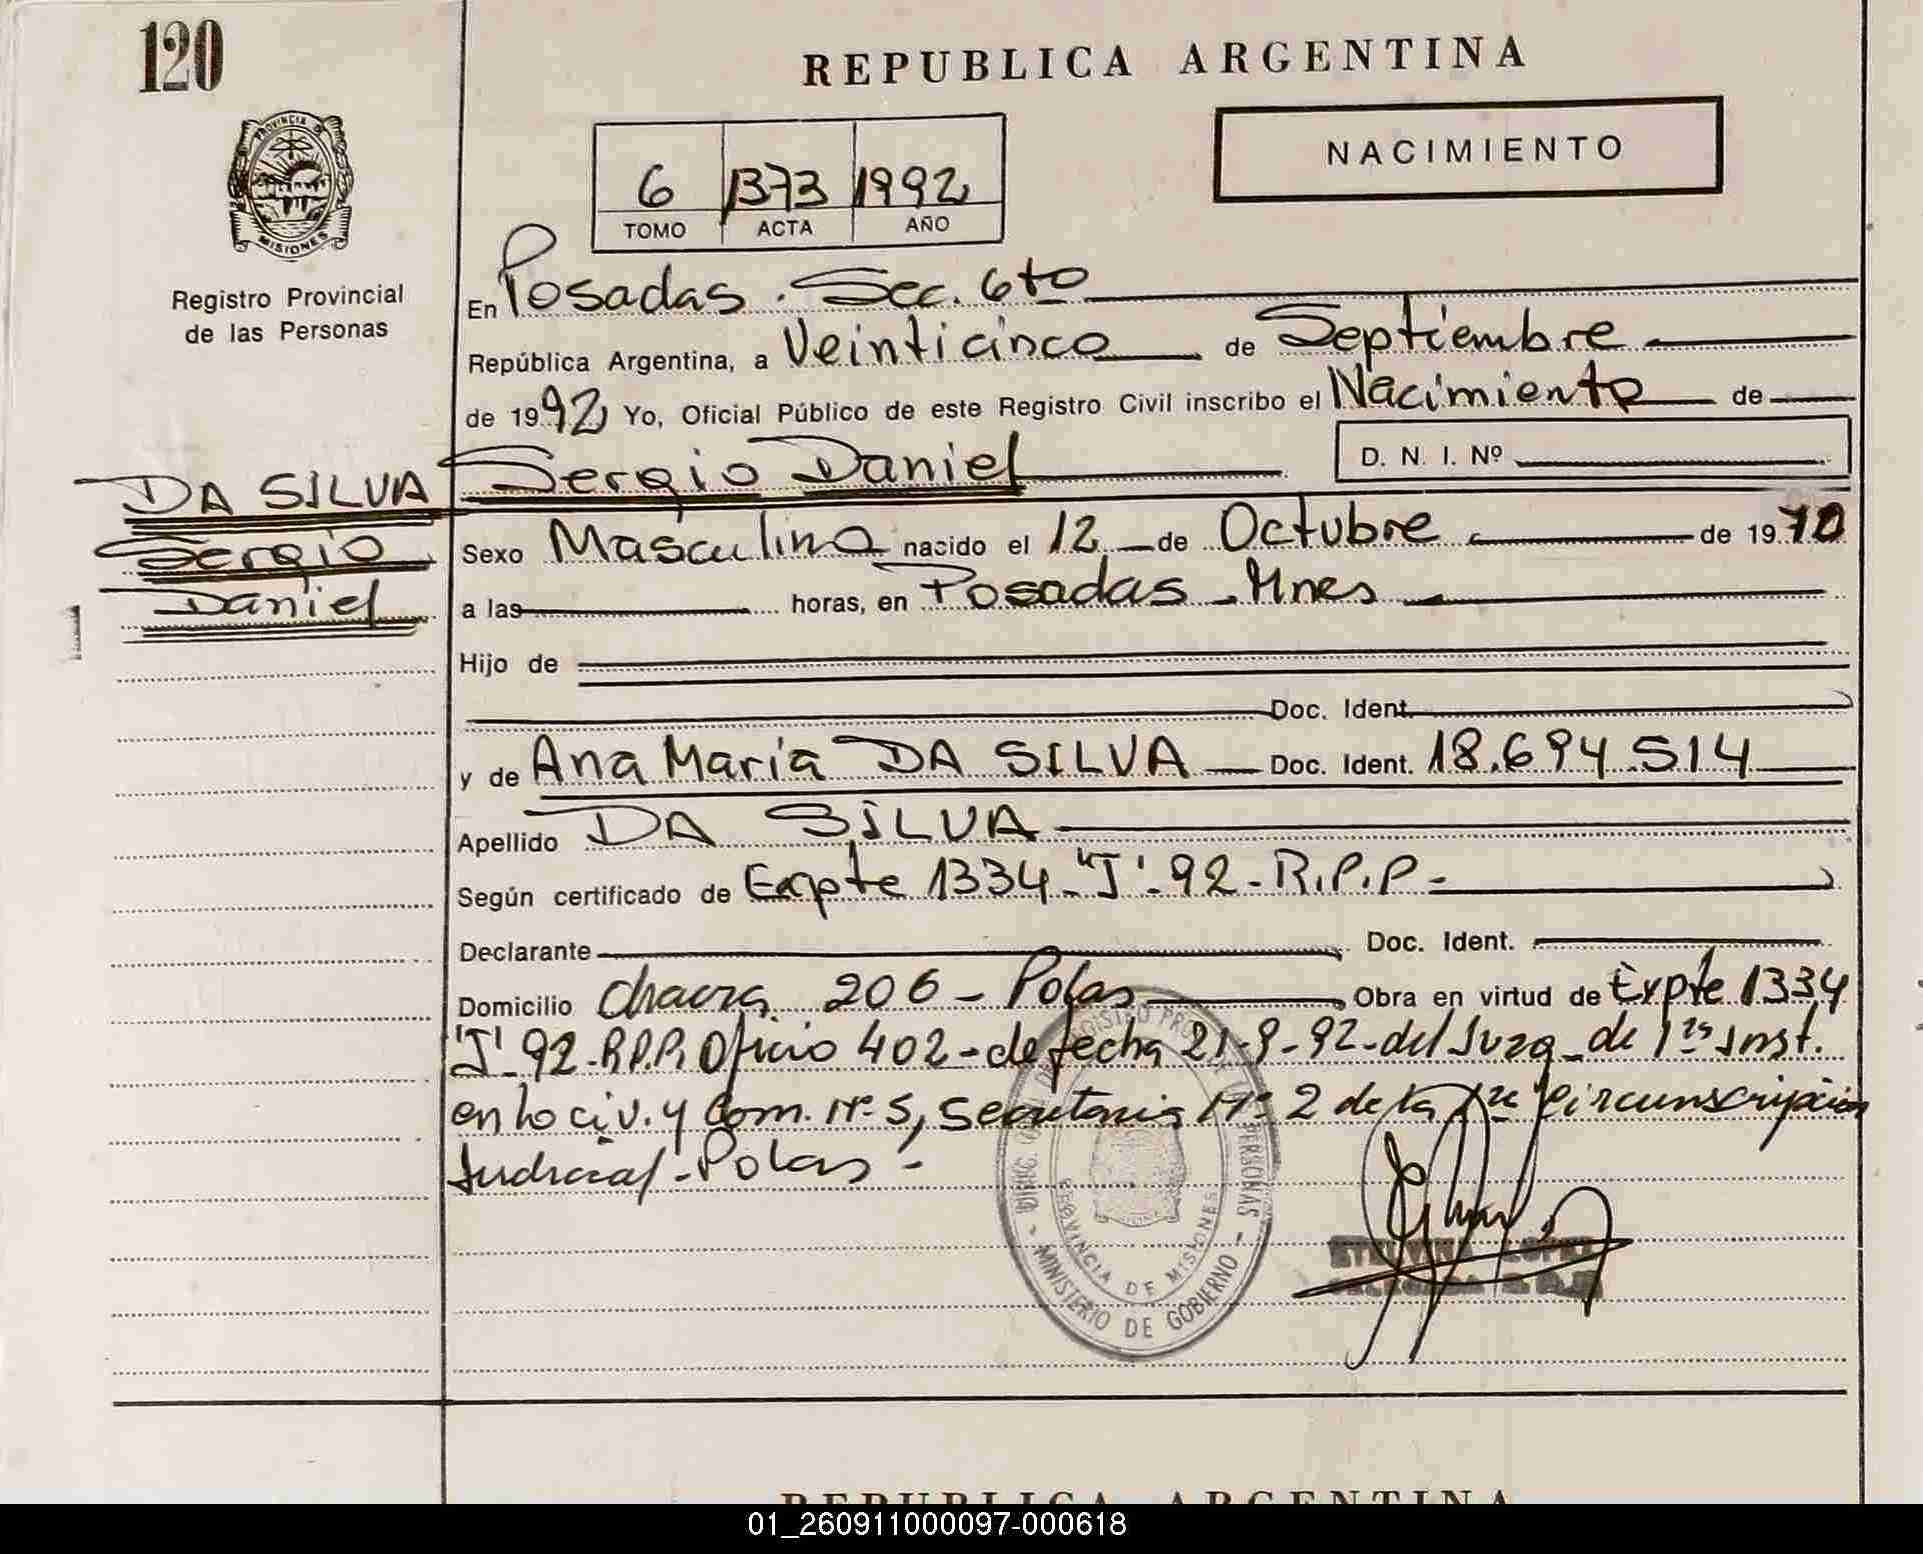 120
REPUBLICA ARGENTINA
NACIMIENTO
6 1373 1992
TOMO ACTA AÑO
PROVINCIA DE
MISIONES
Registro Provincial
de las Personas
En Posadas. Sec. 6to
República Argentina, a Veinticinco de Septiembre
de 1992 Yo, Oficial Público de este Registro Civil inscribo el Nacimiento de
Sergio Daniel
D. N. I. Nº
DA SILVA
Sergio
Daniel
Sexo Masculino nacido el 12 de Octubre de 1970
a las horas, en Posadas - Mnes
Hijo de
Doc. Ident.
y de Ana María DA SILVA Doc. Ident. 18.694.514
Apellido DA SILVA
Según certificado de Expte 1334-"J"-92-R.P.P-
Declarante Doc. Ident.
Domicilio chacra 206 - Pdas Obra en virtud de Expte 1334
"J"-92-R.P.P. Oficio 402-de fecha 21-9-92-del Juzg. de 1ra Inst.
en lo civ. y Com. Nº 5, Secretaria Nº 2 de la 1ra Circunscripción
Judicial - Pdas -
PROVINCIA DE MISIONES
MINISTERIO DE GOBIERNO
REPUBLICA ARGENTINA
01_260911000097-000618